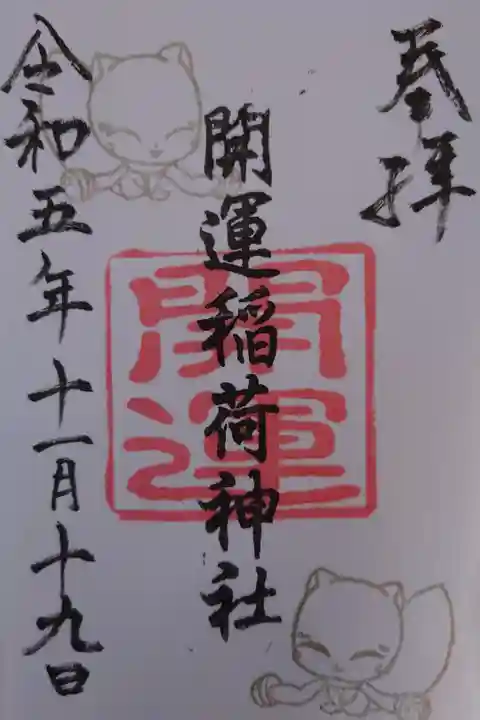 奉拝
開運稲荷神社
開運
令和五年十一月十九日